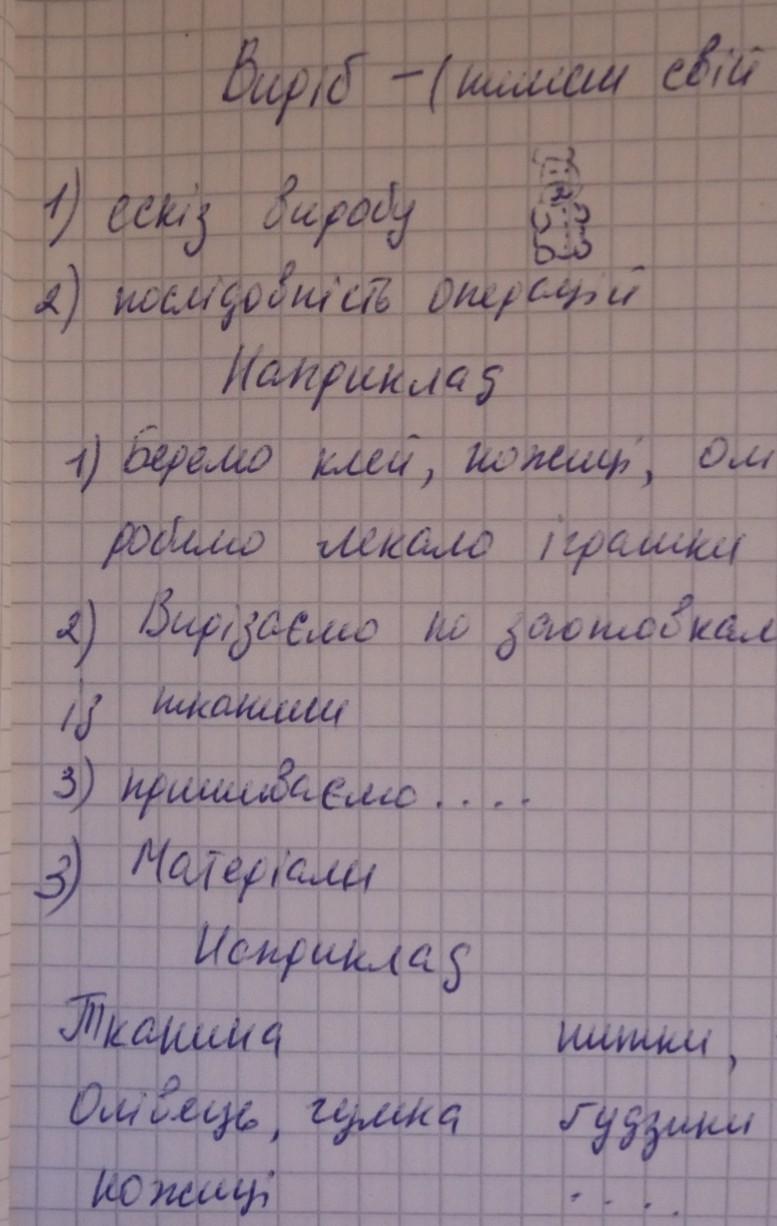 Виріб - (пишем свій
1) ескіз виробу
2) послідовність операцій
Наприклад
1) Беремо клей, ножиці, ол
робимо лекало іграшки
2) Вирізаємо по заготовкам
із тканини
3) пришиваємо....
3) Матеріали
Наприклад
Тканина нитки,
Олівець, гумка гудзики
ножиці ....